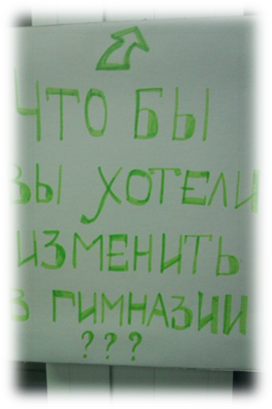 ЧТО БЫ
ВЫ ХОТЕЛИ
ИЗМЕНИТЬ
В ГИМНАЗИИ
???